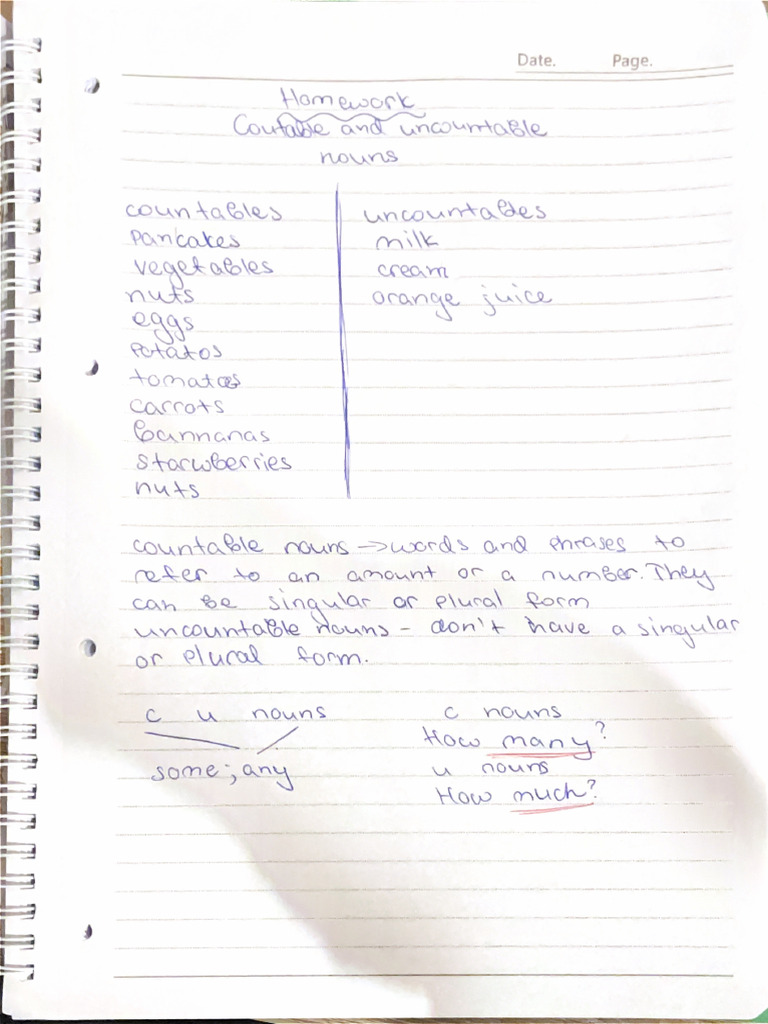 Date. Page.
Homework
Coutable and uncountable
nouns
countables
pancakes
vegetables
nuts
eggs
potatos
tomatoes
carrots
bannanas
starwberries
nuts
uncountables
milk
cream
orange juice
countable nouns → words and phrases to
refer to an amount or a number. They
can be singular or plural form
uncountable nouns - don't have a singular
or plural form.
c u nouns
some; any
c nouns
How many?
u nouns
How much?